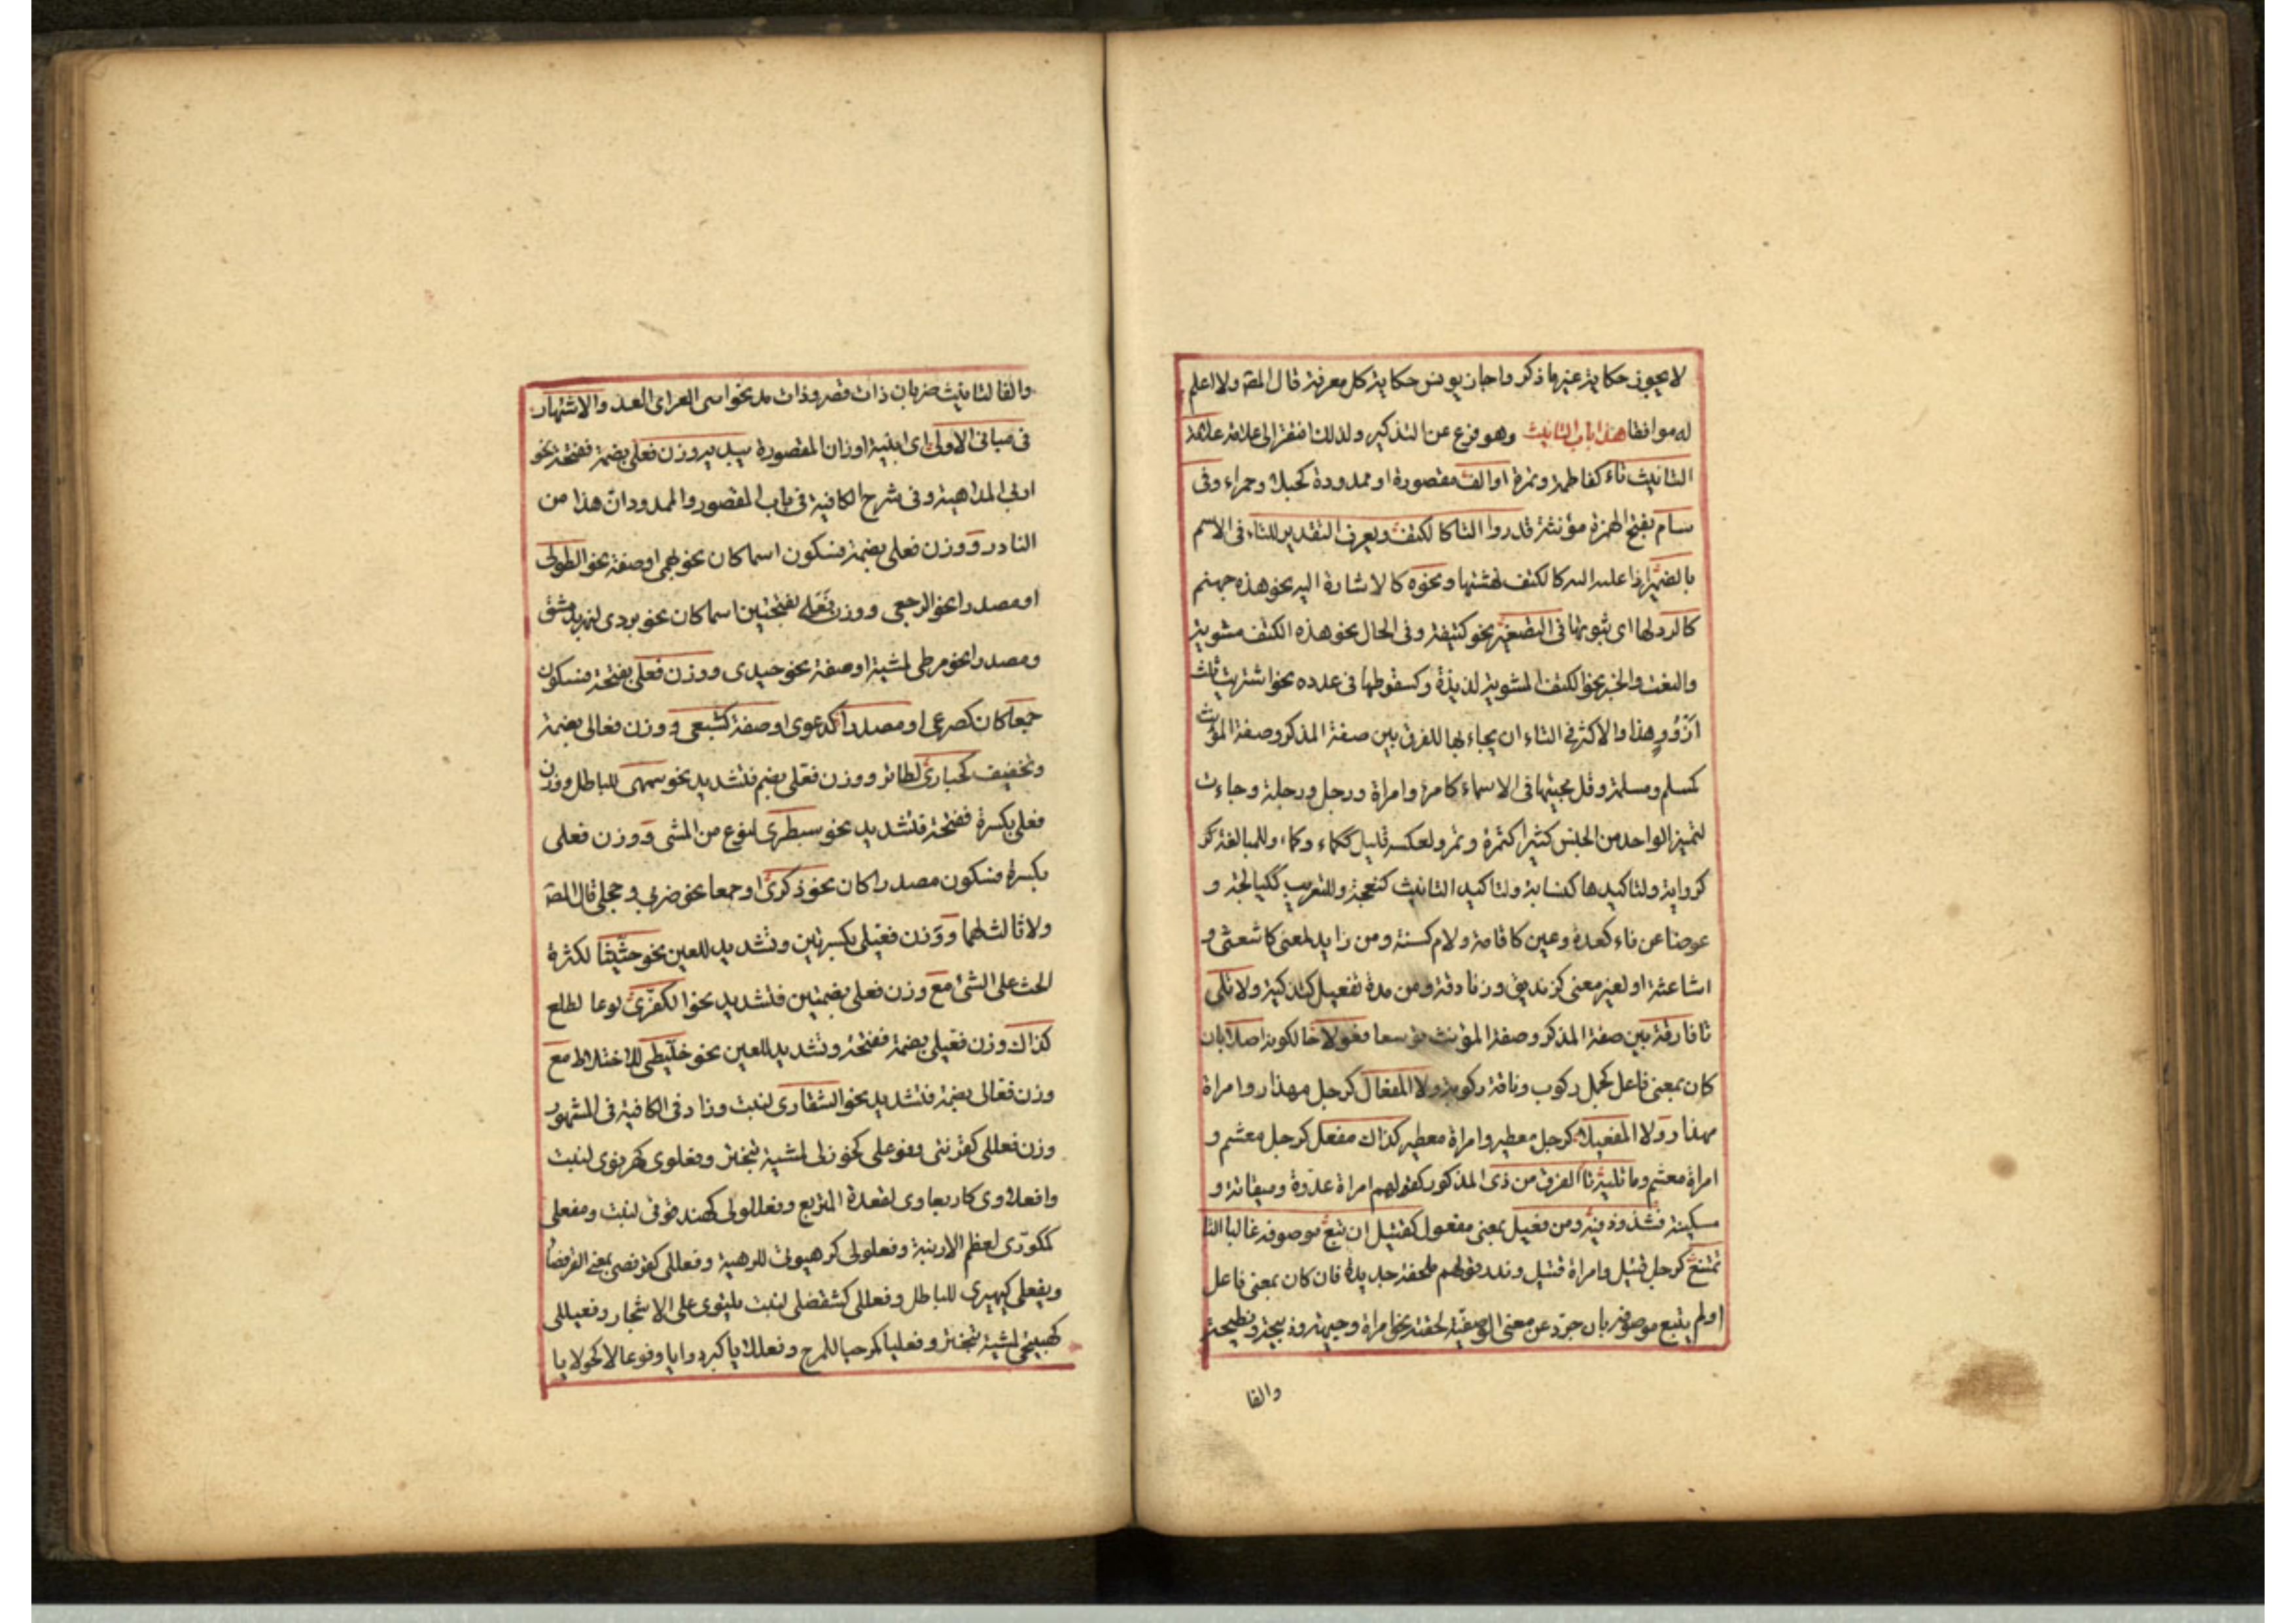 لا يجوز حكاية غيرها ذكر واجاز يونس حكاية كل معرفة قال المصـ ولا اعلم
له موافقا هذا باب التانيث وهو فرع عن التذكير ولذلك افتقر الى علامة علامة
التانيث تاء كفاطمة وتمرة او الف مقصورة او ممدودة كحبلى وحمراء وفى
اسام بفتح الهمزة مؤنثة قدروا التا كا لكتف ويعرف التقدير للتاء فى الاسم
بالضمير اذا اعيد اليه كالكتف نهشتها ونحوه كالاشارة اليه نحو هذه جهنم
كالرد لها اى ثبوتها فى التصغير نحو كتيفة وفى الحال نحو هذه الكتف مشوية
والنعت والخبر نحو الكتف المشوية لذيذة وكسقوطها فى عدده نحو اشتريت ثلث
اذؤد هذا والاكثر فى التاء ان يجاء بها للفرق بين صفة المذكر وصفة المؤنث
كمسلم ومسلمة وقل مجيئها فى الاسماء كامرؤ وامراة ورجل ورجلة وجاءت
لتميز الواحد من الجنس كثيرا كتمرة وتمر ولعكسه قليل ككماء وكماة وللمبالغة كر
كرواية ولتاكيدها كنسابة ولتاكيد التانيث كنعجة وللتعريب ككيالجة و
عوضا عن فاء كعدة وعين كاقامة ولام كسنة ومن زايد لمعنى كاشعثى و
اشاعثة او لغير معنى كزنديق وزنادقة ومن مدة تفعيل كتزكية ولا تلى
تا فارقة بين صفة المذكر وصفة المؤنث توسعا فعولا حالكونه اصلا بان
كان بمعنى فاعل كجمل ركوب وناقة ركوبة ولا المفعال كرجل مهذار وامراة
مهذار ولا المفعيلا كرجل معطير وامراة معطير كذاك مفعل كرجل معشم و
امراة معشم وما تليه تا الفرق من ذى المذكور كقولهم امراة عدوة وميقانة و
مسكينة فشذوذ فيه ومن فعيل بمعنى مفعول كقتيل ان تبع موصوفه غالبا التا
تمتنع كرجل قتيل وامراة قتيل وندد قولهم ملحفة جديدة فان كان بمعنى فاعل
اولم يتبع موصوفه بان جرد عن معنى الوصفية لحقته نحو امراة وجيهة وذبيحة ونطيحة
والفا
والفا لتانيث ضربان ذات قصر وذات مد نحو انثى الغر اى الغراء والاشتهار
فى مبانى الاولى اى ابنية اوزان المقصورة يبديه وزن فعلى بضمة ففتحة نحو
اربى لداهية وفى شرح الكافية فى باب المقصور والممدود ان هذا من
النادر ووزن فعلى بضمة فسكون اسما كان نحو بهمى او صفة نحو الطولى
او مصدرا نحو الرجعى ووزن فعلى بفتحتين اسما كان نحو بردى لنهر بدمشق
ومصدرا نحو مرطى لمشية او صفة نحو حيدى ووزن فعلى بفتحة فسكون
جمعا كان كصرعى او مصدرا كدعوى او صفة كشبعى ووزن فعالى بضمة
وتخفيف كحبارى لطائر ووزن فعلى بضم فتشديد نحو سمهى للباطل ووزن
فعلى بكسرة ففتحة فتشديد نحو سبطرى لنوع من المشى ووزن فعلى
بكسرة فسكون مصدرا كان نحو ذكرى او جمعا نحو ضربى وحجلى قال المصـ
ولا ثالث لهما ووزن فعيلى بكسرتين وتشديد للعين نحو حثيثا لكثرة
الحث على الشئ مع وزن فعلى بضمتين فتشديد نحو الكفرى نوعا لطلع
كذاك وزن فعيلى بضمة ففتحة وتشديد للعين نحو خليطى للاختلاط مع
وزن فعالى بضمة فتشديد نحو الشقارى لنبت وزاد فى الكافية فى المشهور
وزن فعللى كفرتنى وفوعلى كخوزلى لمشية تبختر وفعلوى كهرنوى لنبت
وافعلاوى كاربعاوى لقعدة المتربع وفعللولى كهندقوقى لنبت ومفعلى
كمكورى لعظيم الارنبة وفعلوتى كرهبوتى للرهبة وفعللى كقرفصى بمعنى القرفصا
ويفعلى كيهيرى للباطل وفعللى كشفصلى لنبت يلتوى على الاشجار وفعيللى
كهبيخى لمشية تبختر وفعليا كمرحيا للمرح وفعللايا كبردرايا وفوعالا كحولايا